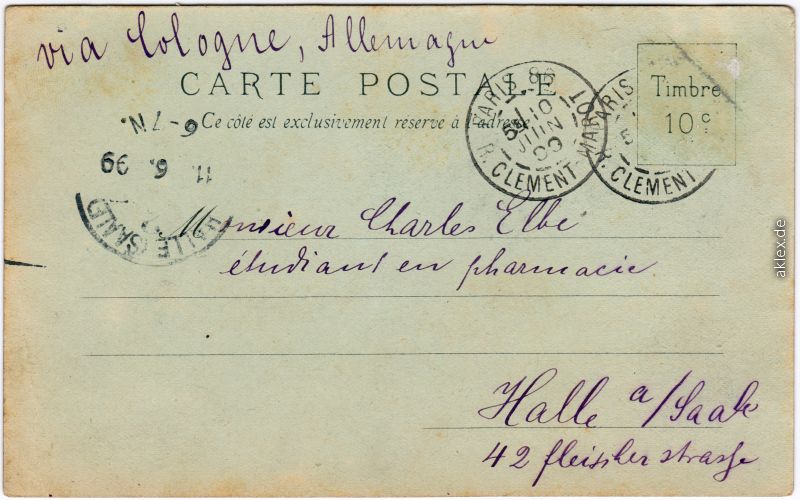 via Cologne, Allemagne
CARTE POSTALE
Ce côté est exclusivement réservé à l'adresse
Timbre
10 c
PARIS 86
10
JUIN
99
R. CLEMENT-MAROT
PARIS
R. CLEMENT
6-7 N.
11. 6. 99
HALLE (SAALE)
Monsieur Charles Elbe
étudiant en pharmacie
Halle a/Saale
42 fleischerstrasse
aklex.de